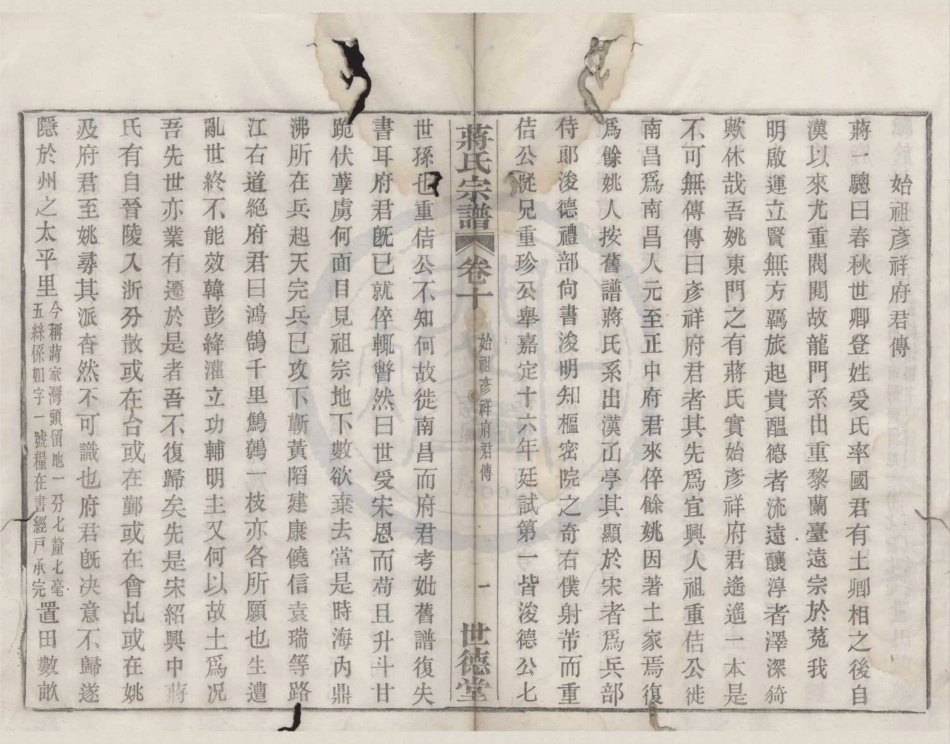 始祖彥祥府君傳
蔣一驄曰春秋世卿登姓受氏率國君有土卿相之後自
漢以來尤重閥閱故龍門系出重黎蘭臺遠宗於菟我
明啟運立賢無方羈旅起貴醞德者流遠釀淳者澤深猗
歟休哉吾姚東門之有蔣氏實始彥祥府君遙遡一本是
不可無傳傳曰彥祥府君者其先爲宜興人祖重佶公徙
南昌爲南昌人元至正中府君來倅餘姚因著土家焉復
爲餘姚人按舊譜蔣氏系出漢㓰亭其顯於宋者爲兵部
侍郎浚德禮部尙書浚明知樞密院之奇右僕射芾而重
佶公從兄重珍公舉嘉定十六年廷試第一皆浚德公七
蔣氏宗譜
卷十
始祖彥祥府君傳
一
世德堂
世孫也重佶公不知何故徙南昌而府君考妣舊譜復失
書耳府君旣已就倅輒瞥然曰世受宋恩而苟且升斗甘
跪伏孽虜何面目見祖宗地下數欲棄去當是時海內鼎
沸所在兵起天完兵已攻下蘄黃陷建康饒信袁瑞等路
江右道絕府君曰鴻鵠千里鷦鷯一枝亦各所願也生遭
亂世終不能效韓彭絳灌立功輔明主又何以故土爲况
吾先世亦業有遷於是者吾不復歸矣先是宋紹興中蔣
氏有自晉陵入浙分散或在台或在鄞或在會乩或在姚
及府君至姚尋其派杳然不可識也府君旣決意不歸遂
隱於州之太平里
今稱蔣家灣頭留地一分七釐七毫
五絲係如字一號糧在書經戸承完
置田數畝